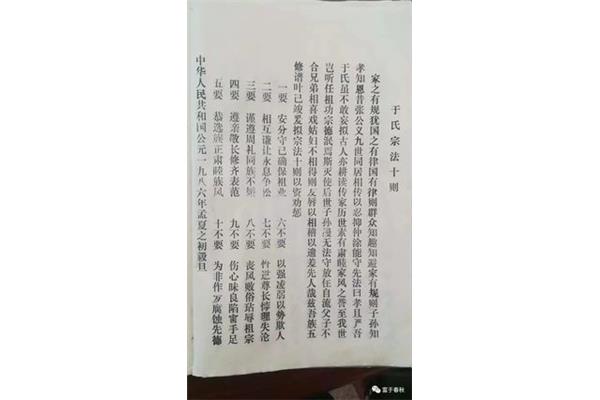 于氏宗法十则
家之有规犹国之有律国有律则群众知趋知避家有规则子孙知
孝知恩昔张公义九世同居相传以忍抑仲涂能守先法曰孝且严吾
于氏虽不敢妄拟古人亦耕读传家历世素有肃睦家风之誉至我世
岂听任祖功宗德泯焉斯灭使后世子孙漫无法守放任自流父子不
合兄弟相喜戏姑妇不相得则反唇以相稽以遗差先人哉兹吾族五
修谱叶已竣爰拟宗法十则以资劝惩
一要 安分守己确保祖业 六不要 以强凌弱以势欺人
二要 相互谦让永息争讼 七不要 忤逆尊长悖理失沦
三要 谨遵周礼同族不婚 八不要 丧风败俗玷辱祖宗
四要 遵亲敬长修齐表范 九不要 伤心昧良陷害手足
五要 恭选族正肃睦族风 十不要 为非作歹腐蚀先德
中华人民共和国公元一九八六年孟夏之初谷旦
富于春秋